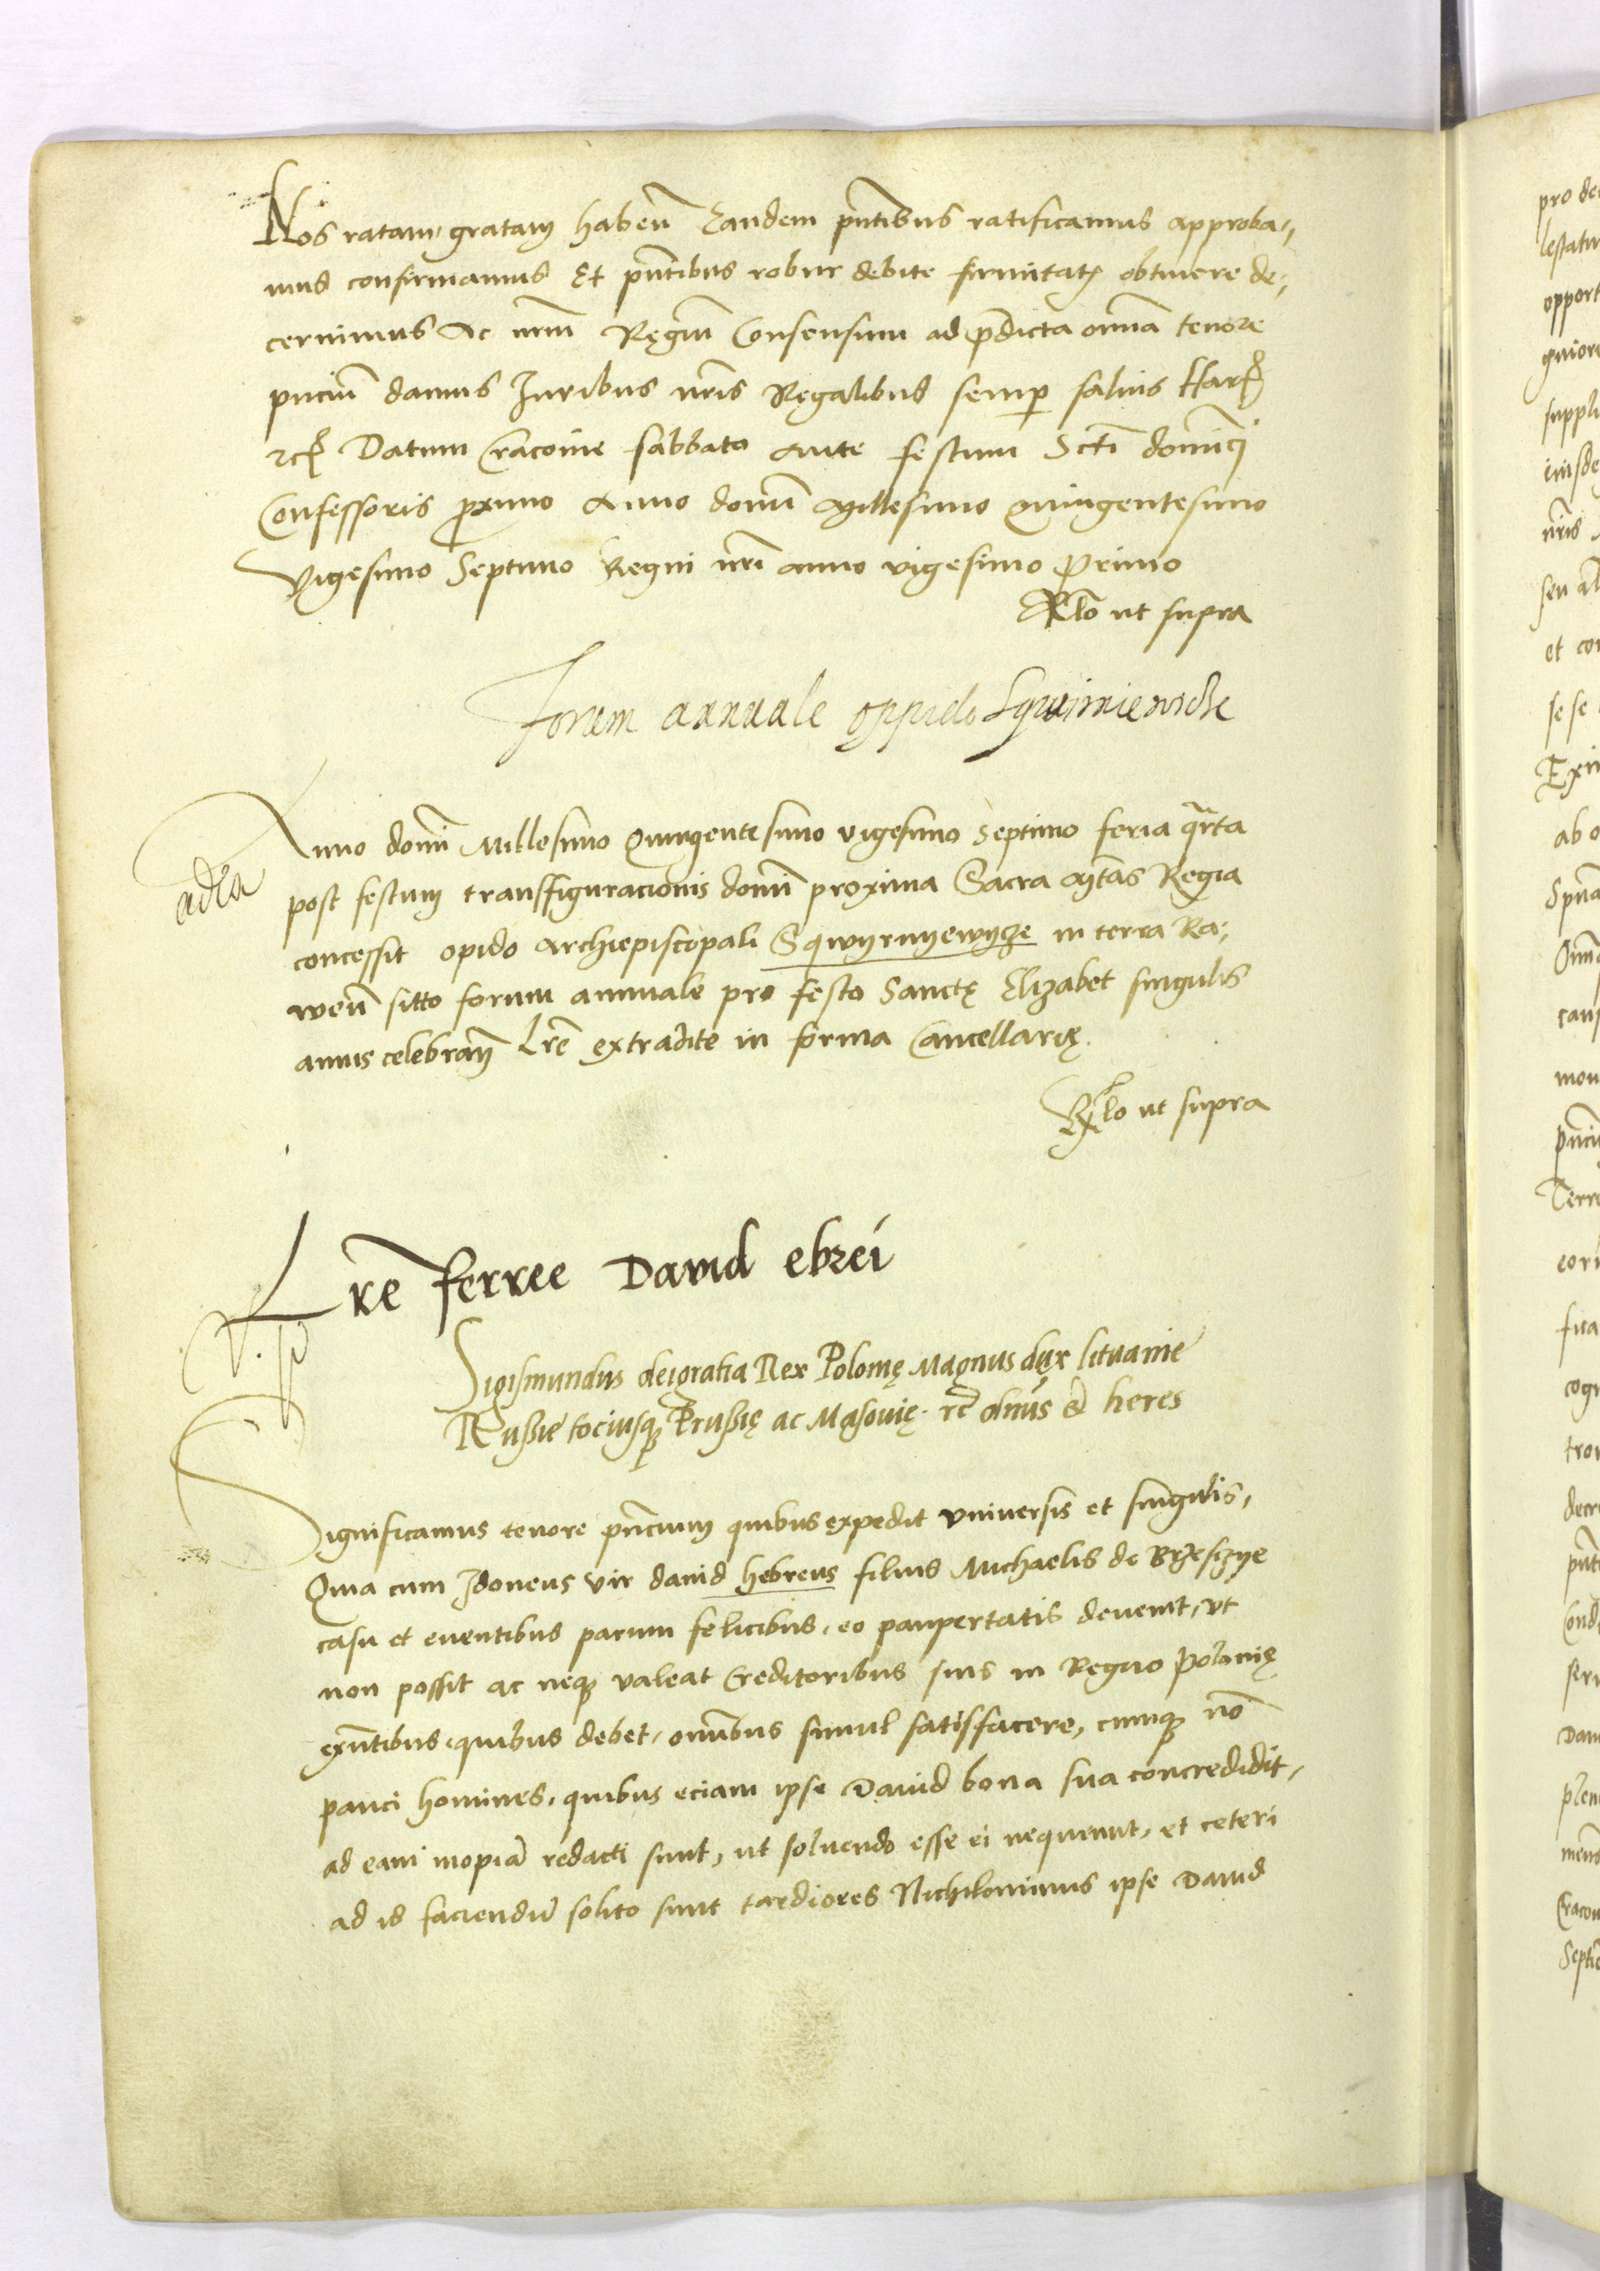 Nos ratam gratam habeñ Eandem pñtibus ratificamus approba-
mus confirmamus Et pñtibus robur debite firmitatis obtinere de-
cernimus Ac nrm̄ Regiū Consensum ad p̄dicta omnia tenore
pnciū damus Iuribus nr̄is Regalibus semp salvis Harꝝ
Datum Cracovie sabbato Ante festum Sctī dominici
Confessoris proximo Anno domī Millesimo Quingentesimo
Vigesimo Septimo Regni nrī anno vigesimo Primo
Rlo ut supra
Forum annuale oppido Sqwirniewicze
Anno domī Millesimo Quingentesimo vigesimo Septimo feria q̄rta
adea
post festum transffiguracionis domī proxima Sacra Mtas Regia
concessit opido Archiepiscopali Sqwyrnyewycze in terra Ra-
weñ sitto forum annuale pro festo Sanctę Elizabet singulis
annis celebranꝫ Lrē extradite in forma Cancellarię.
Rlo ut supra
Lrē ferree David ebrei
Sigismundus dei gratia Rex Polonię Magnus dux lituanie
Russie tociusqꝫ Prussię ac Masovię. rc̄ dnūs & heres
Significamus tenore pñcium quibus expedit universis et singulis,
Quia cum Idoneus vir david hebreus filius Michaelis de Brzesczye
casu et eventibus parum felicibus, eo paupertatis devenit, ut
non possit ac neqꝫ valeat Creditoribus suis in Regno Polonię
exñtibus, quibus debet, omībus simul satisfacere, cumqꝫ nō
pauci homines, quibus eciam ipse David bona sua concredidit,
ad eam inopiā redacti sunt, ut solvendo esse ei nequeunt, et ceteri
ad id faciendū solito sunt tardiores Nichilominus ipse David